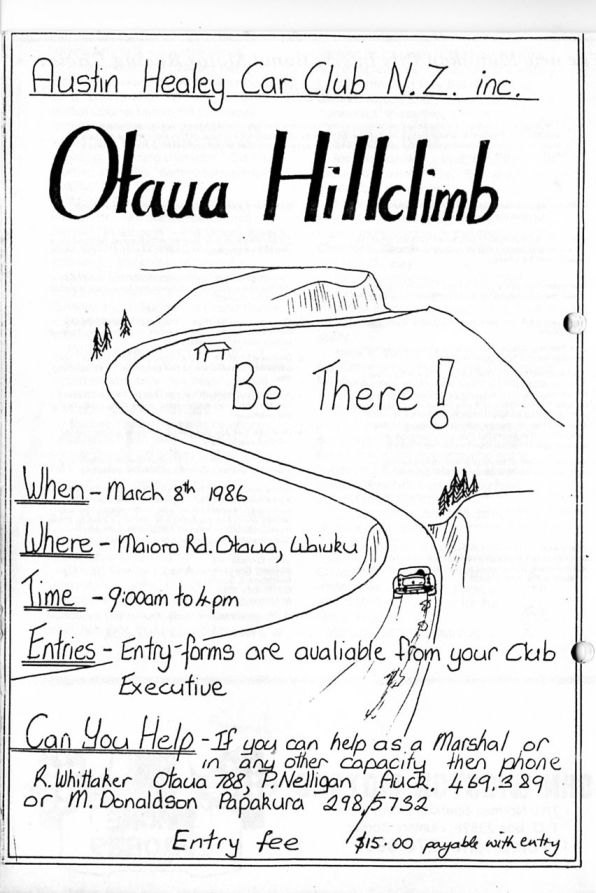 Austin Healey Car Club N.Z. inc.
Otaua Hillclimb
Be There!
When - March 8th 1986
Where - Maioro Rd. Otaua, Waiuku
Time - 9:00am to 4pm
Entries - Entry-forms are avaliable from your Club
Executive
Can You Help - If you can help as a Marshal or
in any other capacity then phone
R. Whittaker Otaua 788, P. Nelligan Auck. 469.389
or M. Donaldson Papakura 298,5732
Entry fee $15.00 payable with entry